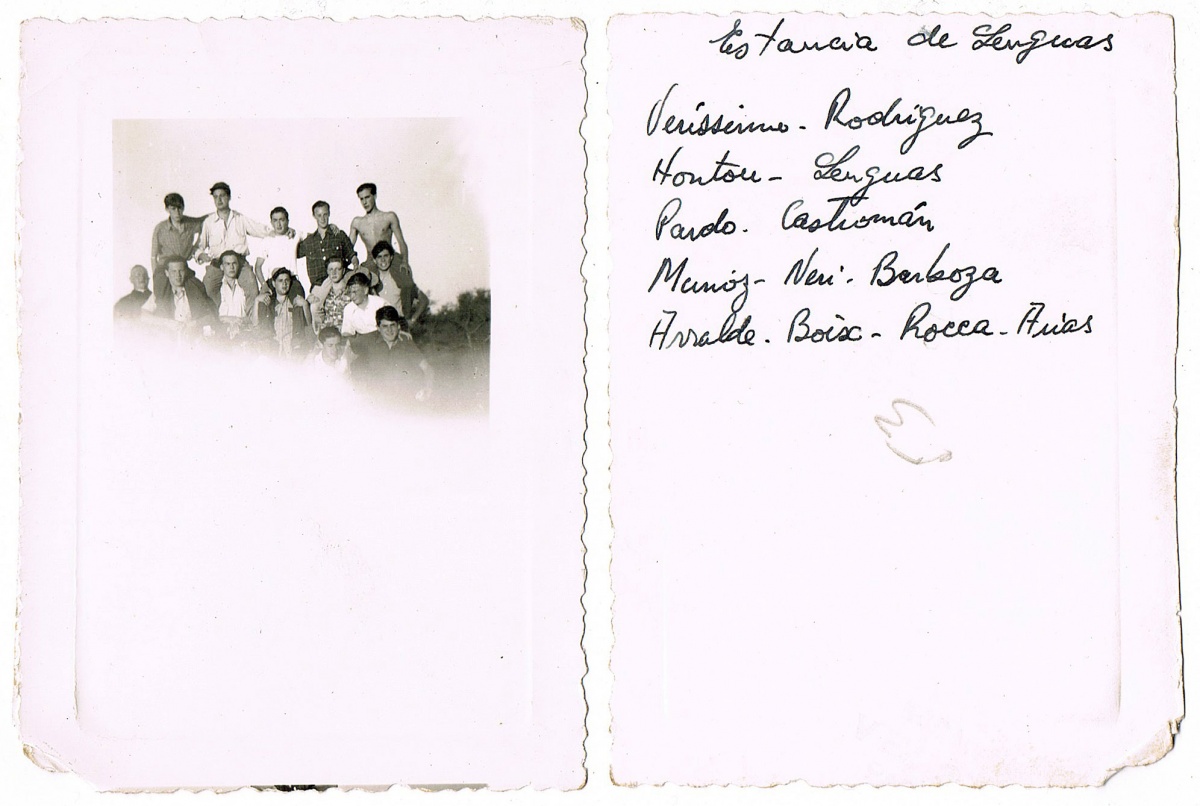 Estancia de Lenguas
Verissimo - Rodríguez
Hontou - Lenguas
Pardo. Castromán
Munóz - Neri. Barboza
Arralde. Boix - Rocca - Arias